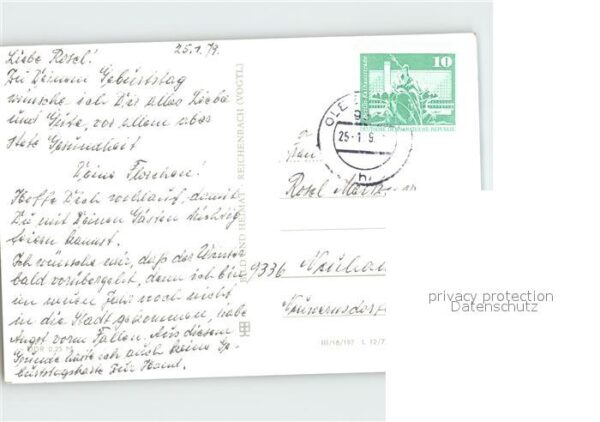 25.1.79.
Liebe Rosel!
Zu Deinem Geburtstag
wünsche ich Dir alles Liebe
und Gute, vor allem aber
stete Gesundheit
Deine Florchen!
Hoffe Dich wohlauf, damit
Du mit Deinen Gästen richtig
feiern kannst.
Ich wünsche mir, daß der Winter
bald vorübergeht, denn ich bin
im neuen Jahr noch nicht
in die Stadt gekommen, habe
Angst vorm Fallen. Aus diesem
Grunde hatte ich auch keine Ge-
burtstagskarte
BILD UND HEIMAT REICHENBACH (VOGTL)
10
DEUTSCHE DEMOKRATISCHE REPUBLIK
25-1
h
Rosel
9336
III/18/197 L 12/7
privacy protection
Datenschutz